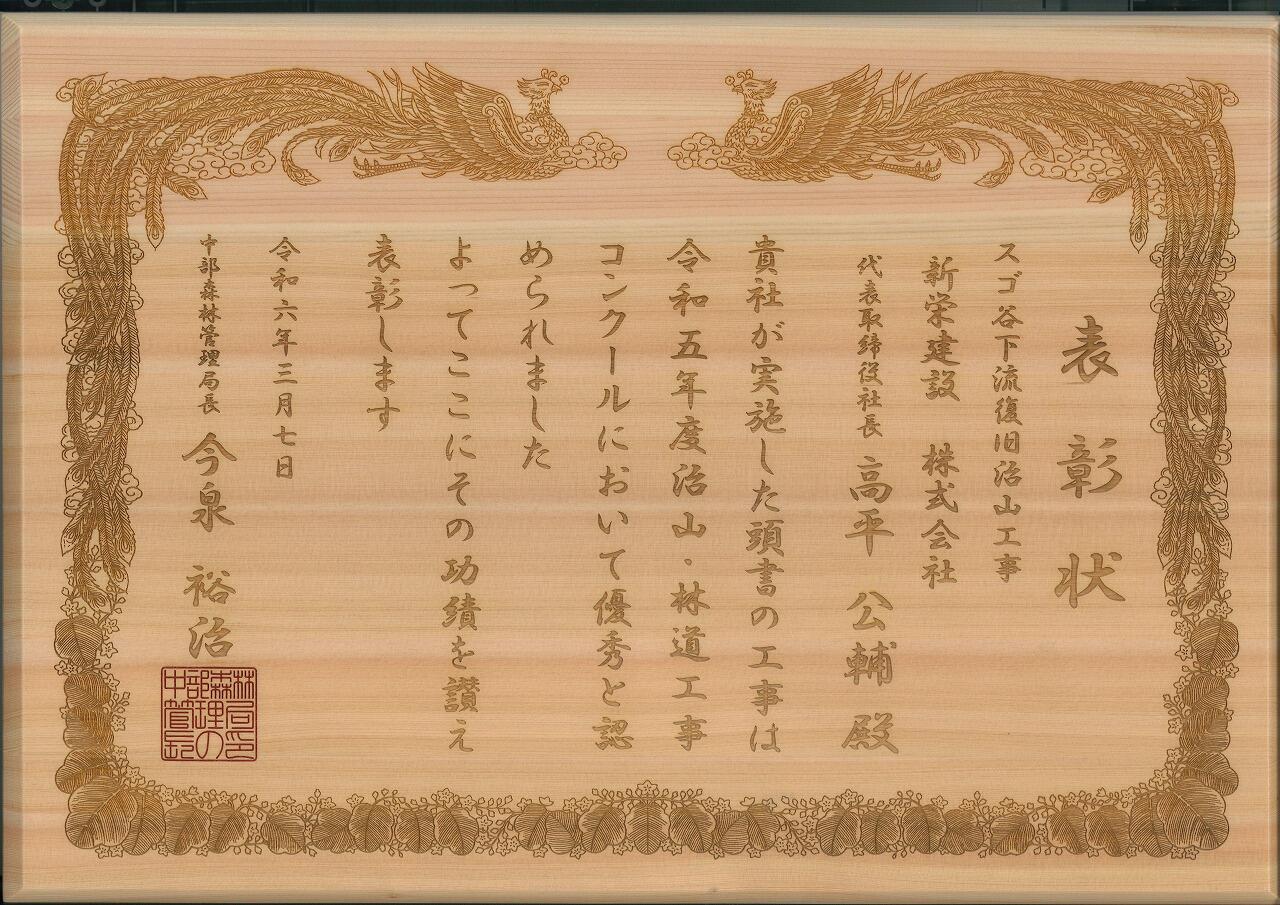 表彰状
スゴ谷下流復旧治山工事
新栄建設 株式会社
代表取締役社長 高平 公輔 殿
貴社が実施した頭書の工事は
令和五年度治山・林道工事
コンクールにおいて優秀と認
められました
よってここにその功績を讃え
表彰します
令和六年三月七日
中部森林管理局長 今泉 裕治
中部森林管理局長の印